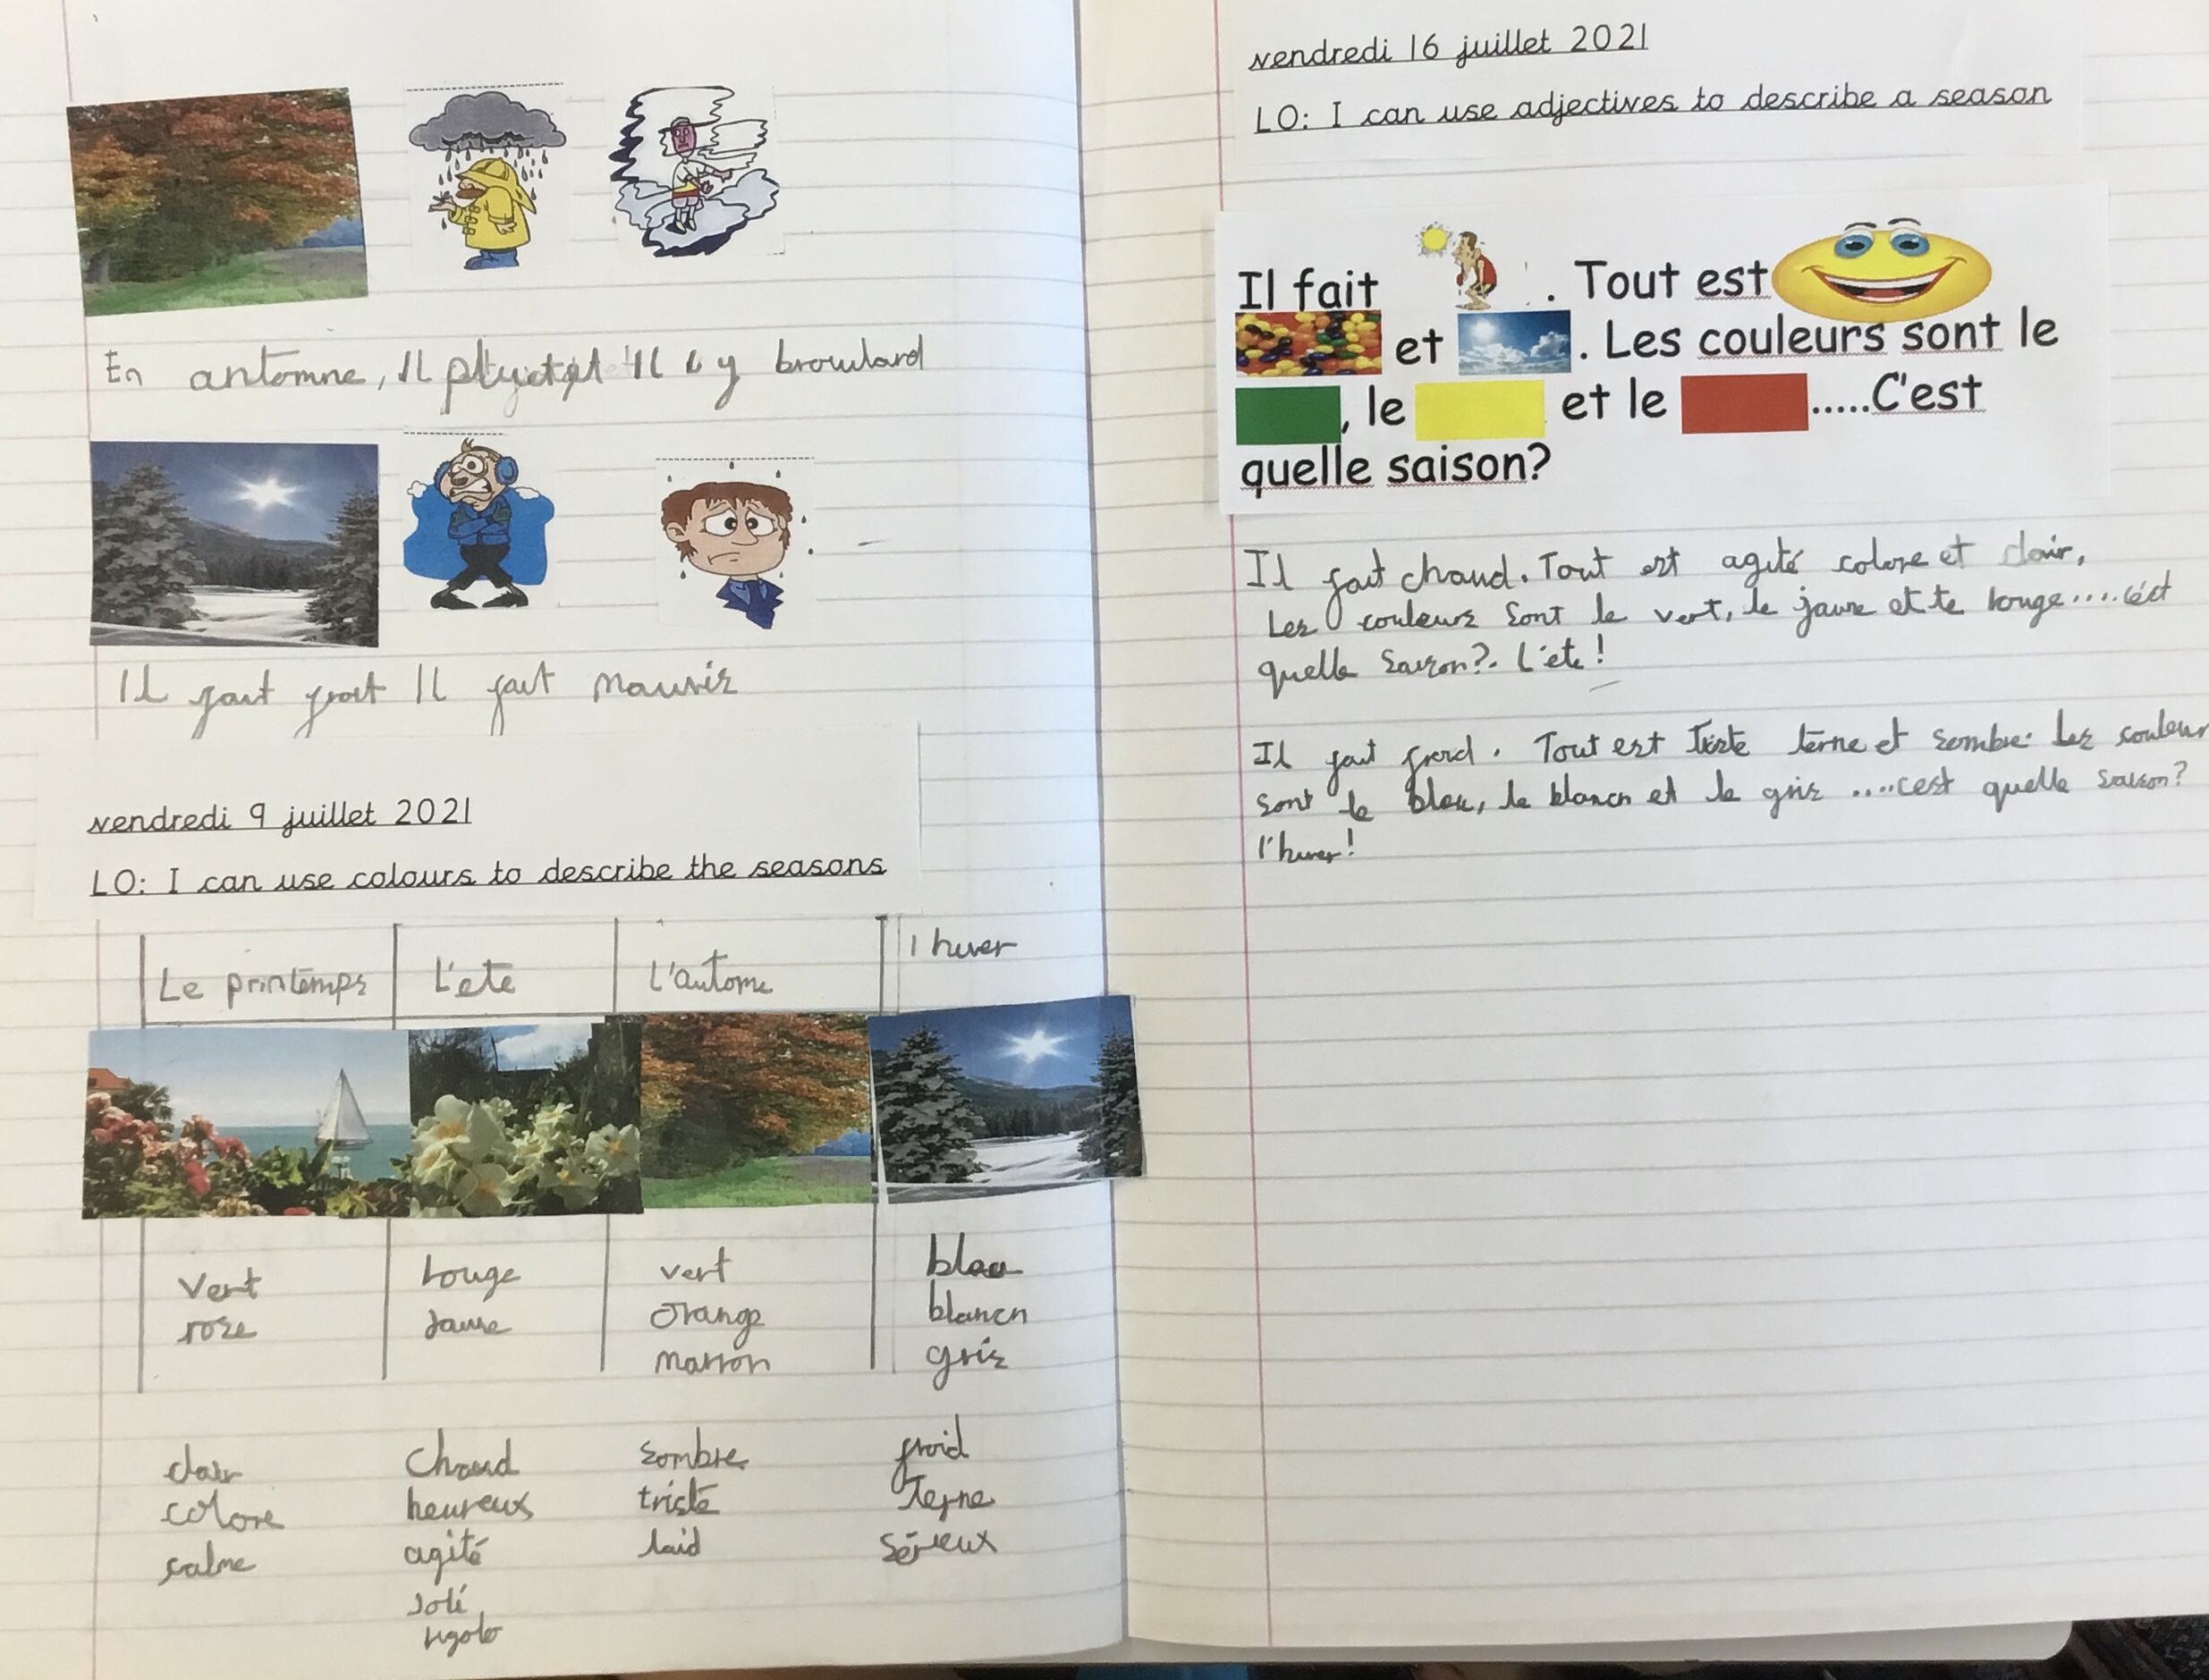 En antomne, Il et Il y brouilard
Il fait froit Il fait mauvis
vendredi 9 juillet 2021
LO: I can use colours to describe the seasons
Le printemps L'ete L'automne l huver
Vert rouge vert bleu
rose Jaune orange blancn
marron gris
clair Chaud sombre froid
colore heureux triste Terne
calme agité laid Sérieux
Joli
rigolo
vendredi 16 juillet 2021
LO: I can use adjectives to describe a season
Il fait . Tout est
et . Les couleurs sont le
, le et le .....C'est
quelle saison?
Il fait chaud. Tout est agité colore et clair,
Les couleurs sont le vert, le jaune et le rouge....c'est
quelle saison?. L'ete!
Il fait froid. Tout est triste terne et sombre. Les couleur
sont le bleu, le blancn et le gris ....cest quelle saison?
l'huver!